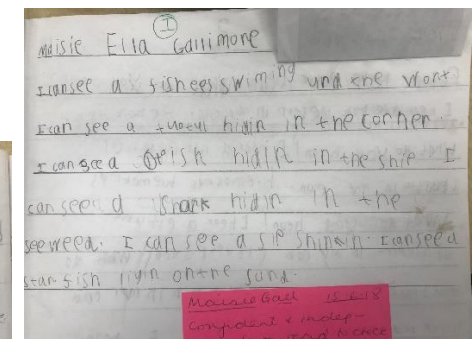 I
Maisie Ella Gallimore
I can see a fishees swiming und the wont
I can see a tuotul hidin in the corner.
I can see a fish hidin in the ship I
can see a shark hidin in the
seeweed. I can see a sip shinain. I can see a
star fish liyin on the sand.
Maisie Gall 15.6.18
Confident & indep-